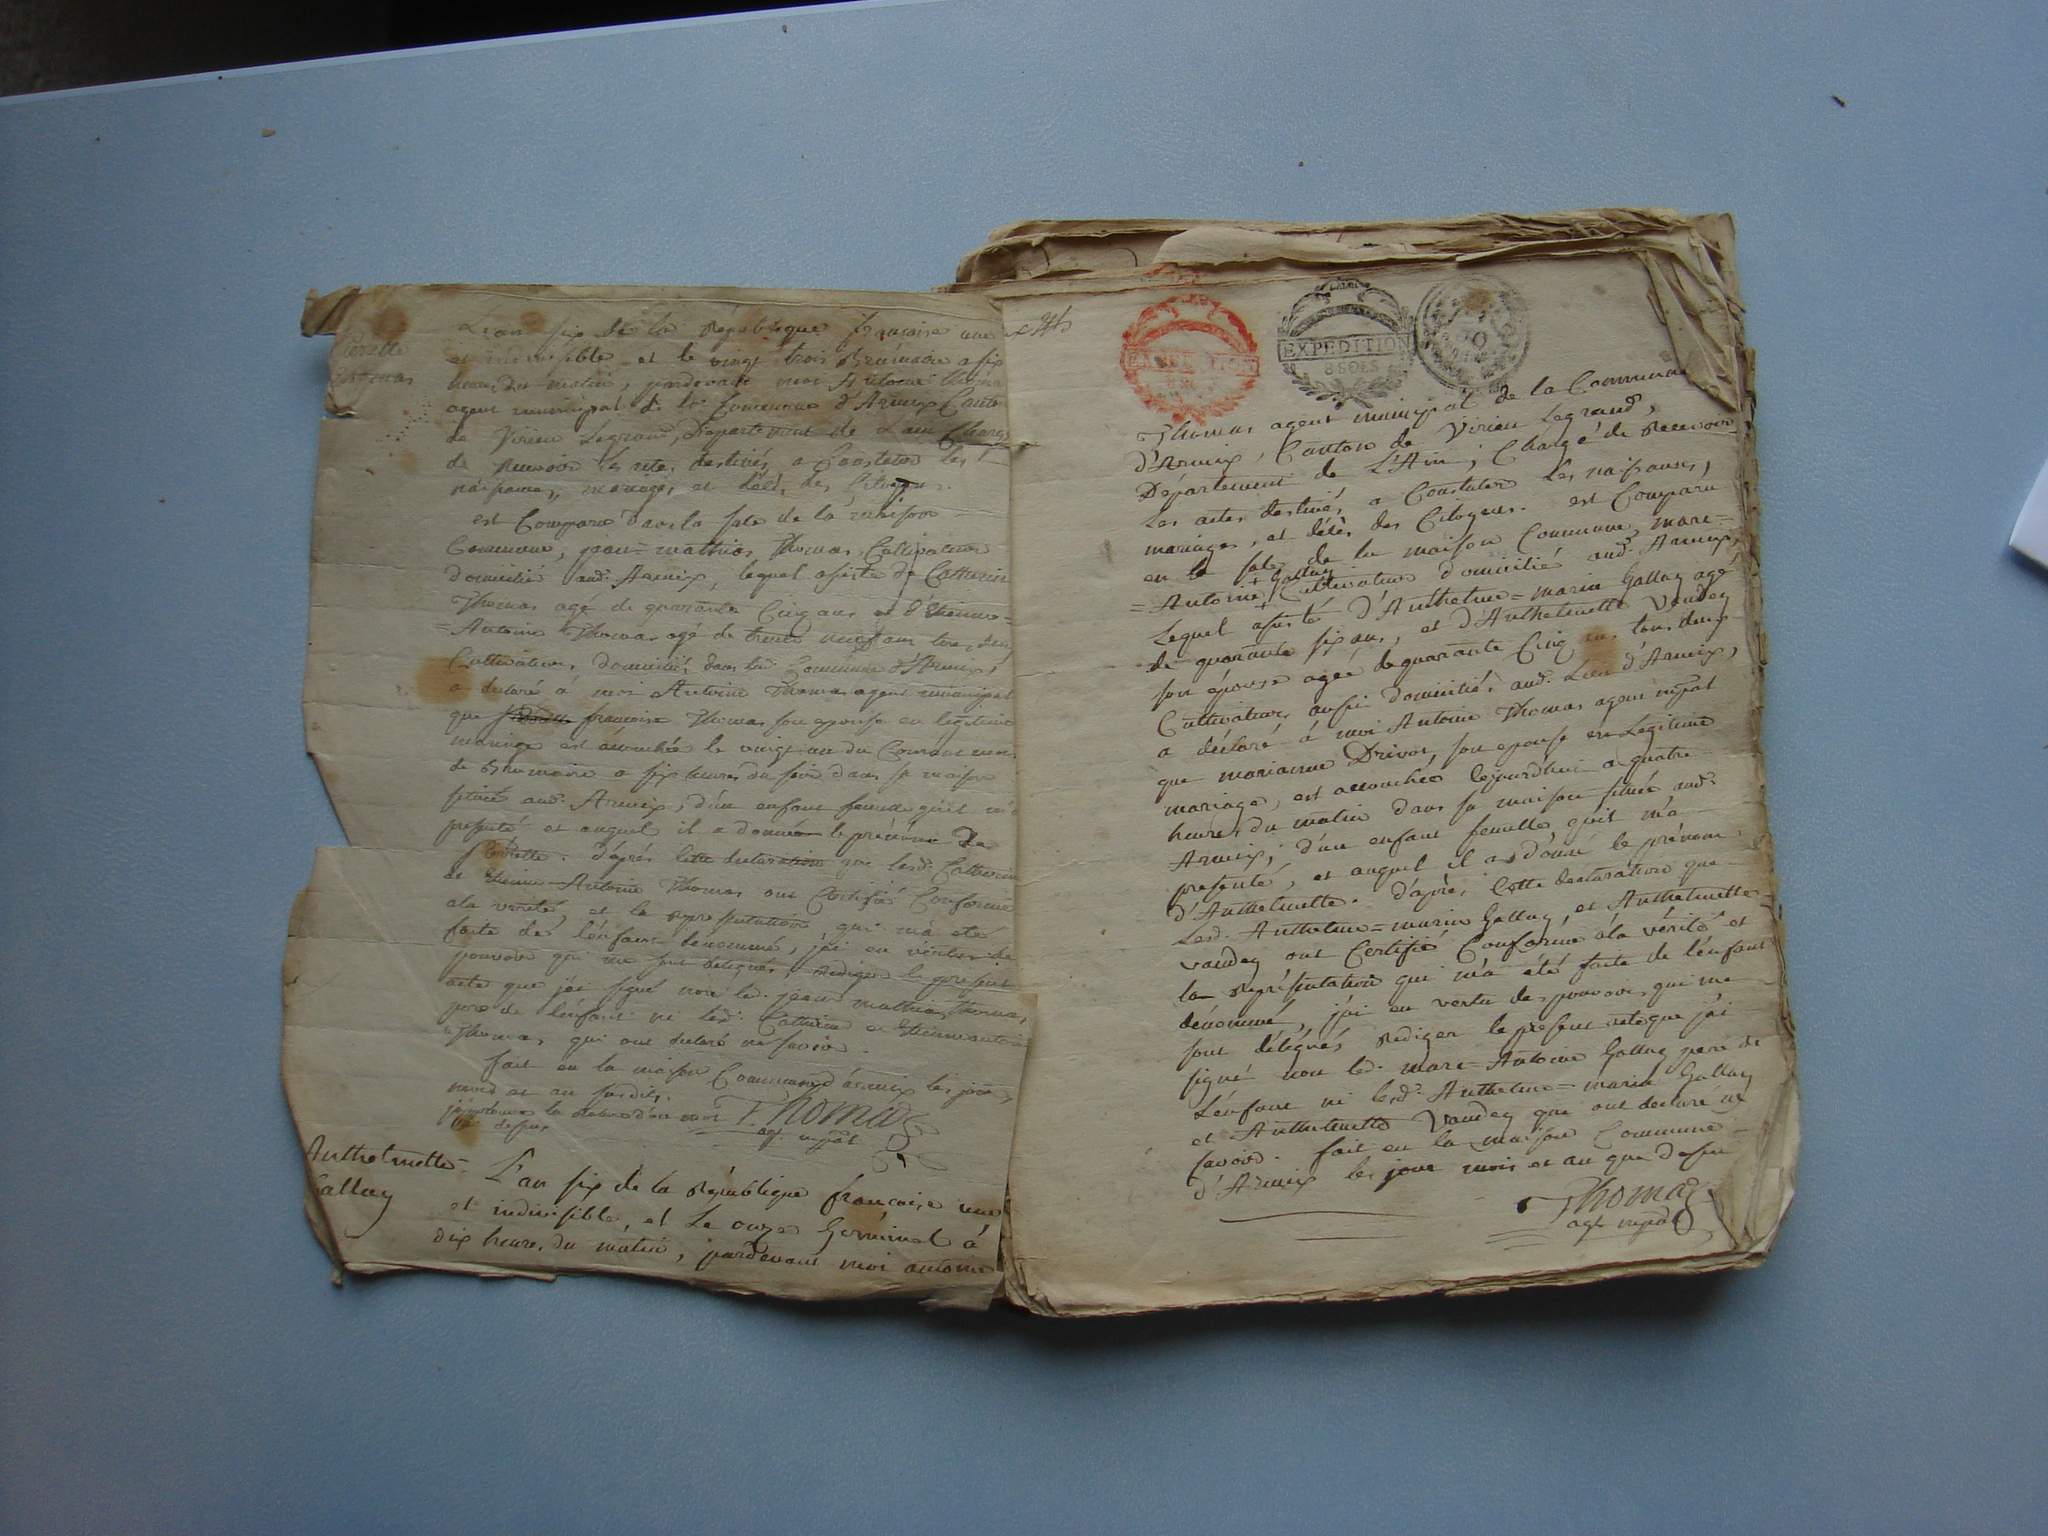 Thomas
L'an six de la République françoise une
et indivisible et le vingt trois Brumaire a six
heures du matin, pardevant moi Antoine Thomas
agent municipal de la Commune d'Armix Canton
de Virieu Legrand, Département de L'ain Chargé
de Recevoir les actes destinés a Constater les
naissances, mariages et décès des Citoyens.
est Comparu dans la sale de la maison
Commune, jean=mathias Thomas Cultivateur
domicilié aud. Armix, lequel assisté de Catherin
Thomas agé de quarante Cinq ans et d'Etienne=
=Antoine Thomas agé de trente neuf ans tous deux
Cultivateurs domiciliés dans lad. Commune d'Armix,
a declaré à moi Antoine Thomas agent municipal
que françoise Thomas son epouse en legitime
mariage est accouchée le vingt un du Courant mois
de Brumaire a six heures du soir dans sa maison
située aud. Armix, d'un enfant femelle qu'il m'a
presenté et auquel il a donné le prénom de
d'après cette declaration que lesd. Catherin
et Etienne Antoine Thomas ont Certifié Conforme
ala vérité, et la representation qui m'a eté
faite de l'enfant denommé, j'ai en vertu des
pouvoirs qui me sont delegués, rediger le present
acte que j'ai signé non led. jean mathias Thomas
pere de l'enfant ni lesd. Catherin et Etienne antoine
Thomas, qui ont declaré ne savoir.
fait en la maison Commune d'armix les jour,
mois et an susdits.
Thomas
agt. mpal
Anthelmette=
Gallay
L'an six de la République françoise une
et indivisible, et le onze Germinal à
dix heures du matin, pardevant moi antoine
EXPEDITION
EXPEDITION
Thomas agent municipal de la Commune
d'Armix, Canton de Virieu Legrand,
Département de L'Ain; Chargé de Recevoir
Les actes destinés a Constater Les naissances,
mariages, et décès des Citoyens. est Comparu
en la sale de la maison Commune, marc=
=Antoine + Gallay Cultivateur domicilié aud. Armix,
Lequel assisté d'Anthelme=marie Gallay agé
de quarante six ans, et d'Anthelmette Vandey
son épouse agée de quarante Cinq ans tous deux
Cultivateurs aussi domiciliés aud. Lieu d'Armix,
a déclaré à moi Antoine Thomas agent mpal
que marianne Drivot, son epouse en Legitime
mariage, est accouchée cejourdhui a quatre
heures du matin dans sa maison située aud.
Armix, d'un enfant femelle qu'il m'a
presenté, et auquel il a donné le prénom
d'Anthelmette. d'après Cette declaration que
Lesd. Anthelme=marie Gallay, et Anthelmette
vandey ont Certifié Conforme ala vérité et
la représentation qui m'a été faite de l'enfant
dénommé, j'ai en vertu des pouvoirs qui me
sont délégués rediger le present acte que j'ai
signé non led. marc=Antoine Gallay pere de
L'enfant ni lesd. Anthelme=marie Gallay
et Anthelmette Vandey qui ont declaré ne
savoir. fait en la maison Commune
d'Armix les jour mois et an que dessus
Thomas
agt mpal